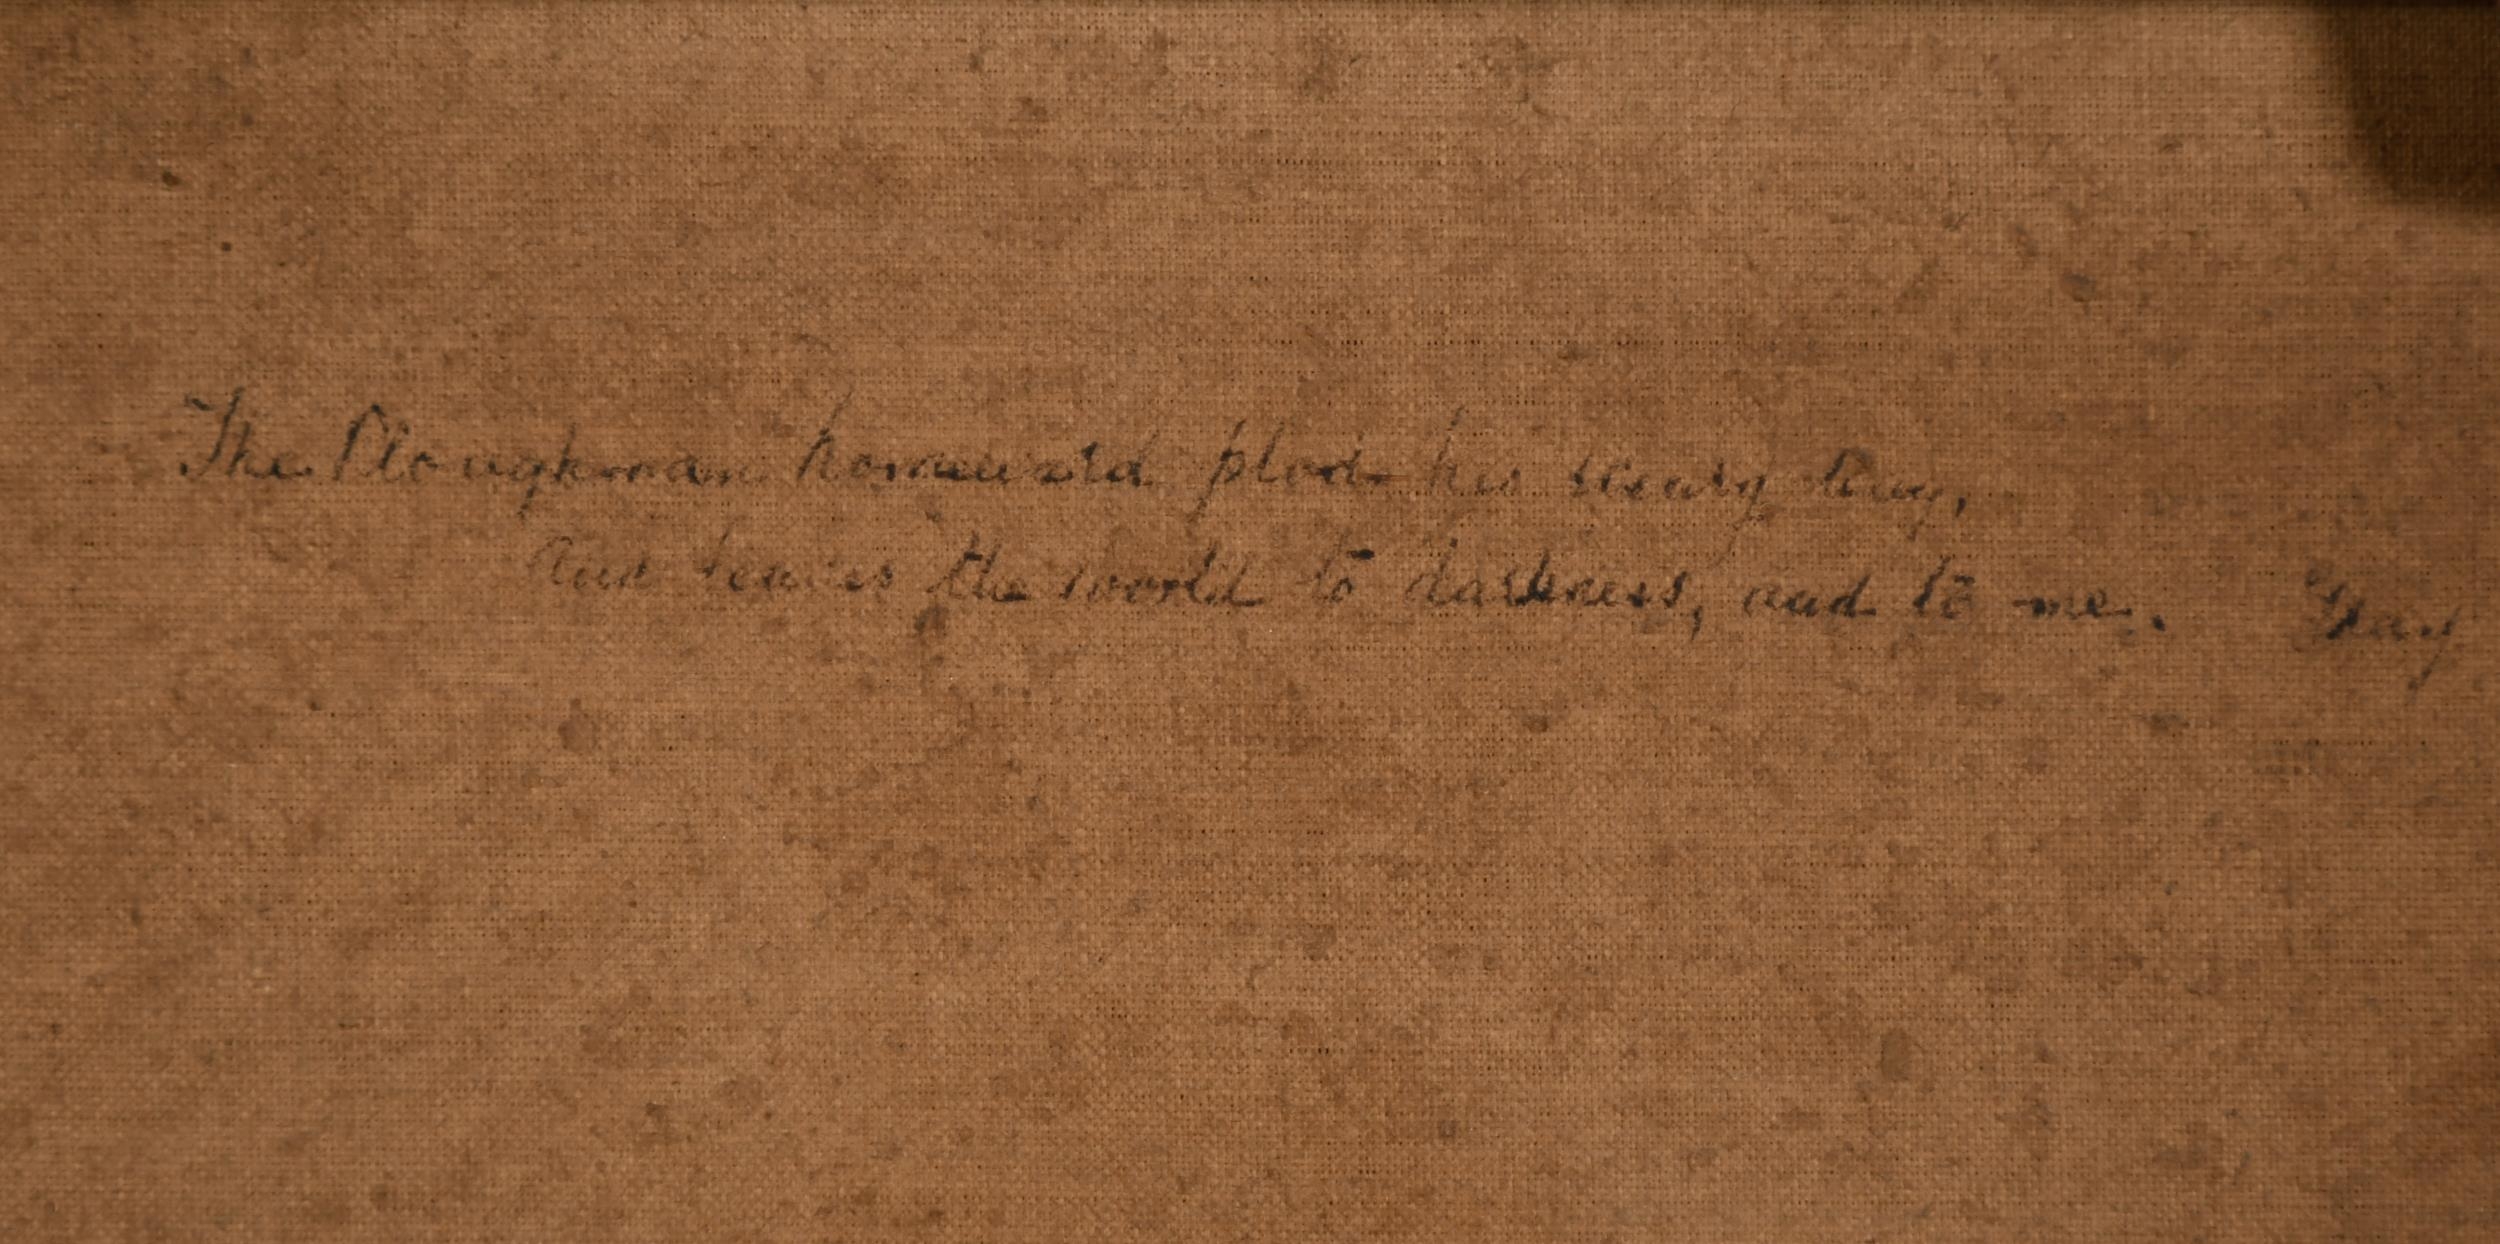 The Ploughman homeward plods his weary way,
And leaves the world to darkness, and to me. Gray